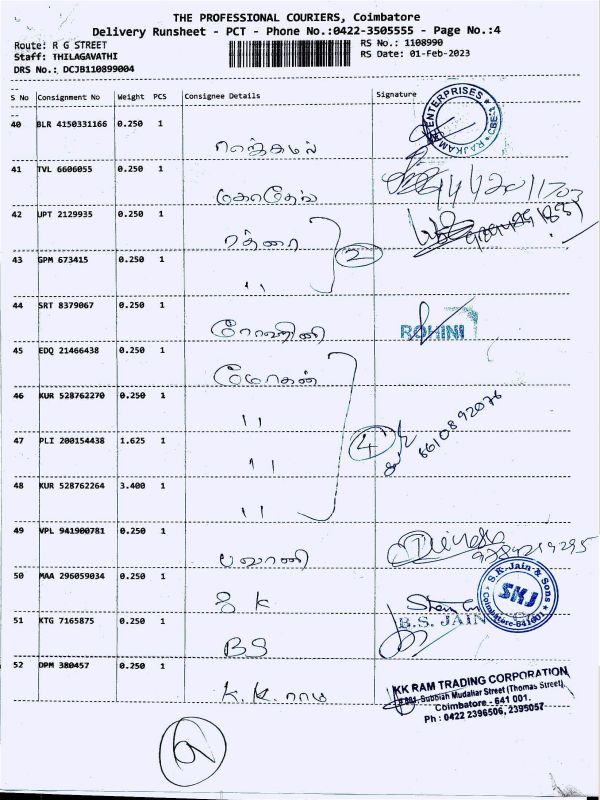 THE PROFESSIONAL COURIERS, Coimbatore
Delivery Runsheet - PCT - Phone No.:0422-3505555 - Page No.:4
Route: R G STREET
Staff: THILAGAVATHI
DRS No.: DCJB110899004
RS No.: 1108990
RS Date: 01-Feb-2023
S No Consignment No Weight PCS Consignee Details Signature
40 BLR 4150331166 0.250 1
ENTERPRISES
CBE-1
ராஜ்கமல்
41 TVL 6606055 0.250 1
மகாதேவ்
42 UPT 2129935 0.250 1
43 GPM 673415 0.250 1
2
"
44 SRT 8379067 0.250 1
ரோஹினி
ROHINI
45 EDQ 21466438 0.250 1
மோகன்
46 KUR 528762270 0.250 1
"
47 PLI 200154438 1.625 1
4
"
48 KUR 528762264 3.400 1
"
49 VPL 941900781 0.250 1
பவானி
50 MAA 296059034 0.250 1
S K
S.K.Jain & Sons
SKJ
Coimbatore-641001
51 KTG 7165875 0.250 1
B.S. JAIN
BS
52 DPM 380457 0.250 1
K.K. ராம்
KK RAM TRADING CORPORATION
Subbiah Mudaliar Street (Thomas Street)
Coimbatore - 641 001.
Ph : 0422 2396506, 2395057